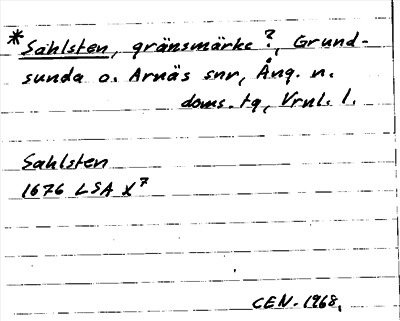 *Sahlsten, gränsmärke?, Grund-
sunda o. Arnäs snr, Ång. n.
doms. tg, Vrnl. l.
Sahlsten
1676 LSA X7
CEN. 1968.